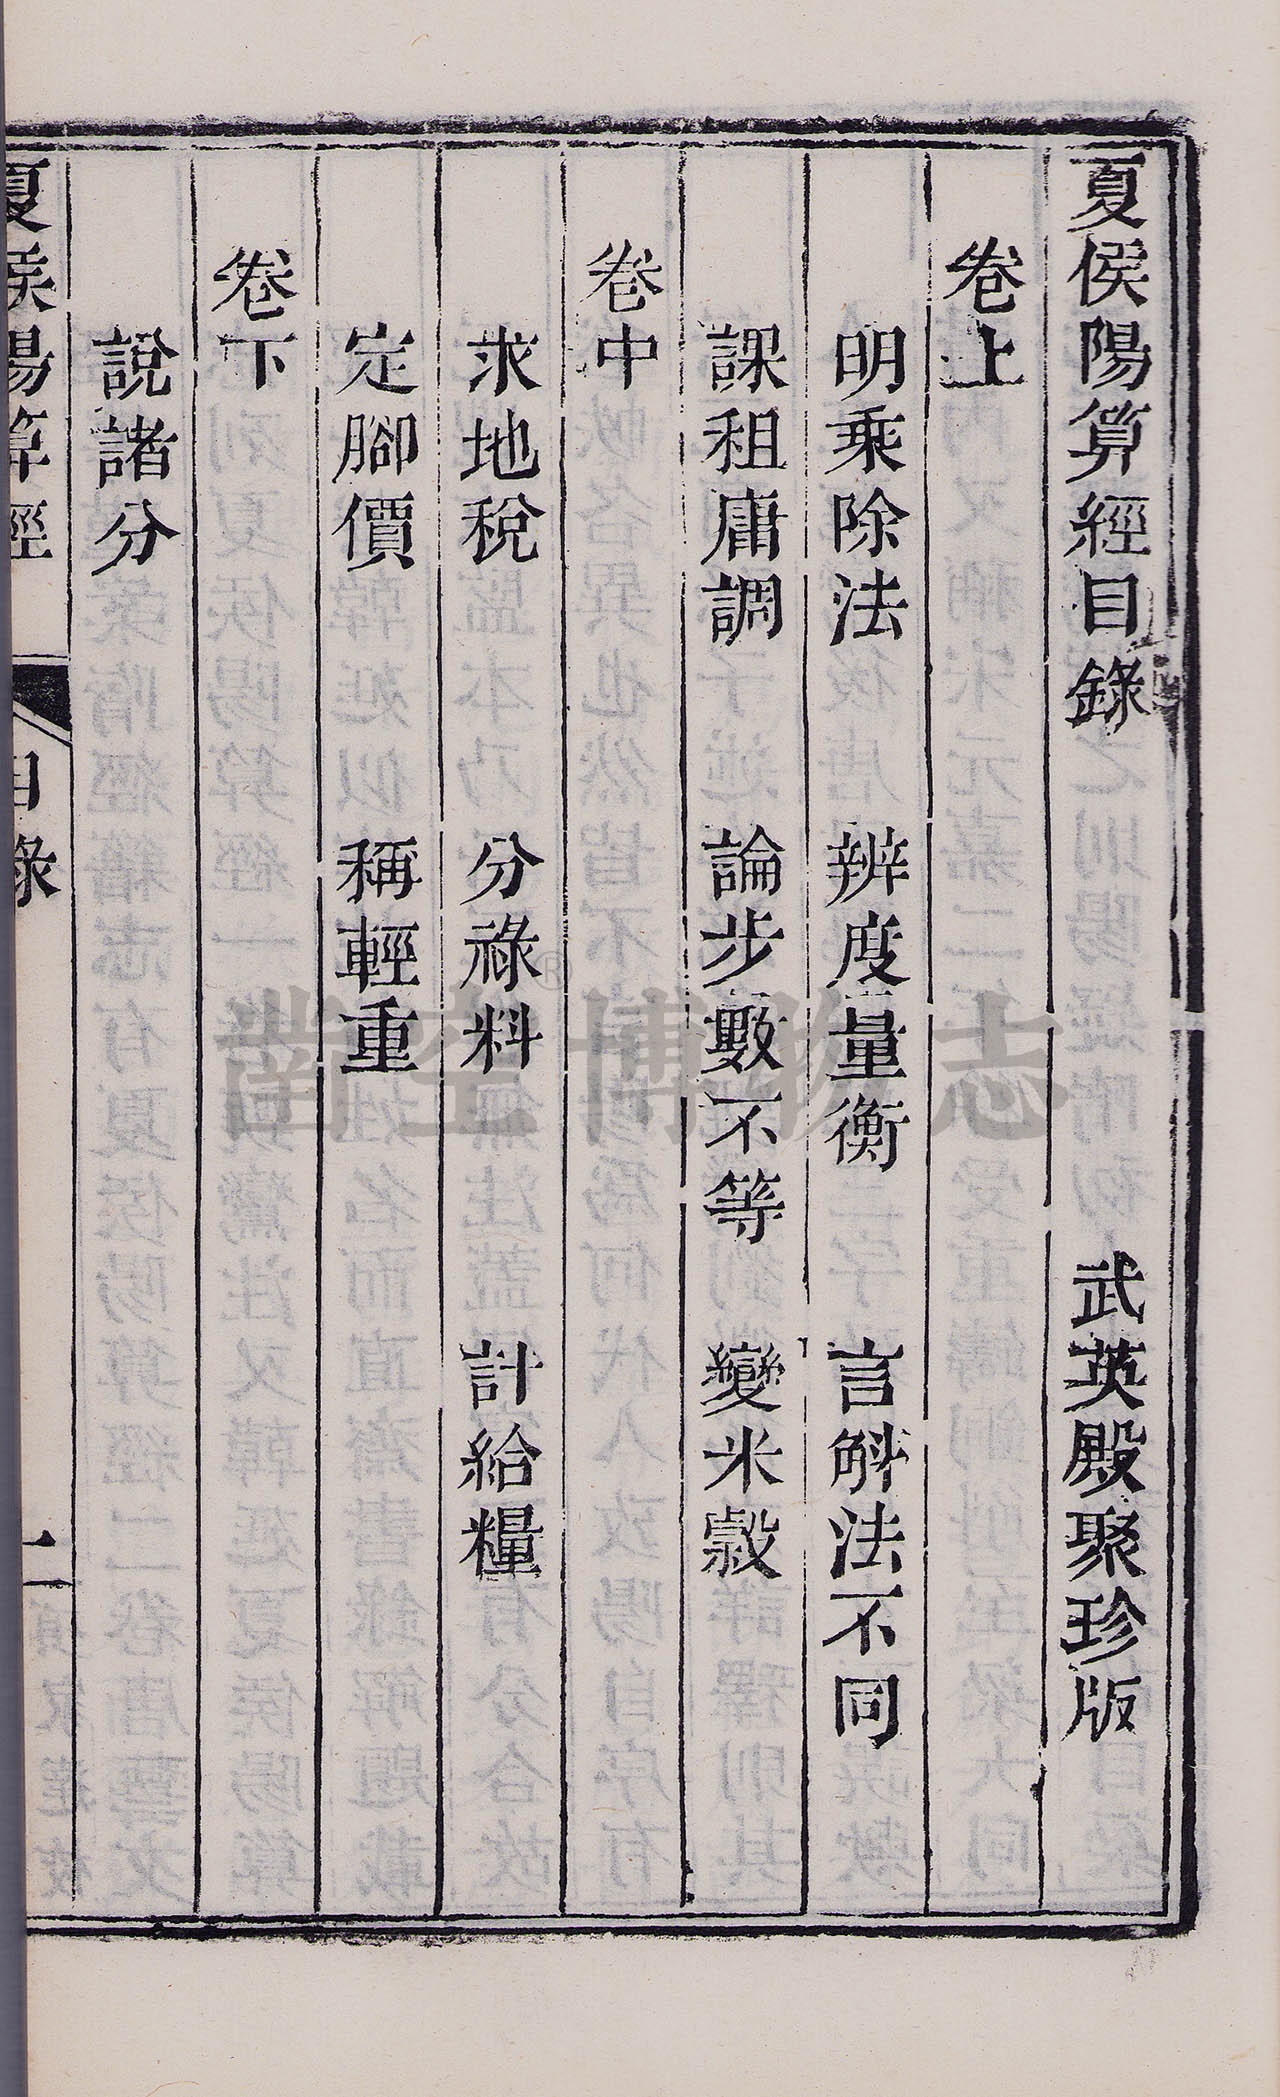 夏侯陽算經目錄　武英殿聚珍版
卷上
明乘除法　辨度量衡　言斛法不同
課租庸調　論步數不等　變米穀
卷中
求地稅　分祿料　計給糧
定腳價　稱輕重
卷下
說諸分
夏侯陽算經　目錄　一
博物志